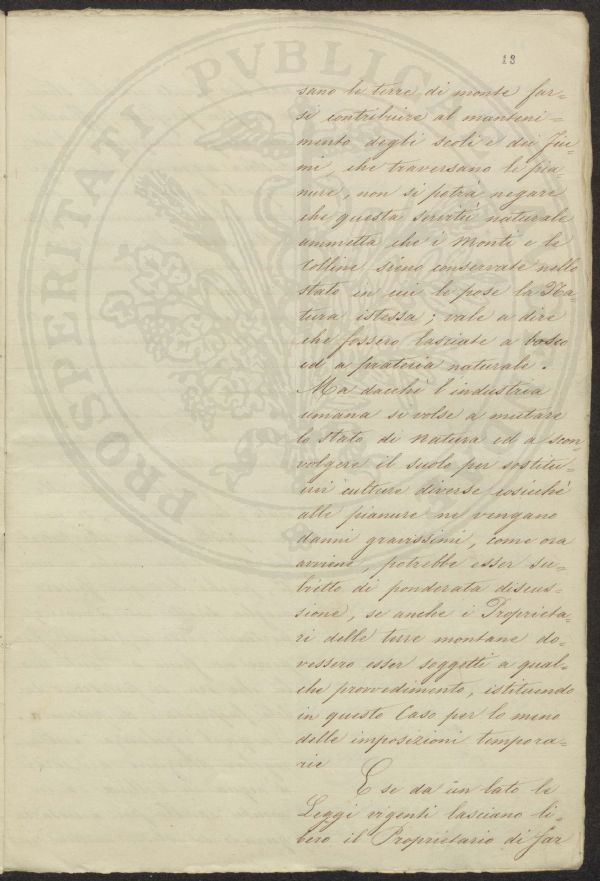 13
PROSPERITATI PVBLICAE
sano le terre di monte far=
si contribuire al manteni=
mento degli scoli e dei fiu=
mi, che traversano le pia=
nure, non si potrà negare
che questa servitù naturale
ammetta che i Monti e le
Colline sieno conservate nello
stato in cui le pose la Na=
tura istessa; vale a dire
che fossero lasciate a bosco
ed a prateria naturale.
Ma dacchè l'industria
umana si volse a mutare
lo stato di natura ed a scon=
volgere il suolo per sostitu=
irvi culture diverse cosicchè
alle pianure ne vengano
danni gravissimi, come ora
avviene, potrebbe esser su=
bietto di ponderata discus=
sione, se anche i Proprieta=
ri delle terre montane do=
vessero esser soggetti a qual=
che provvedimento, istituendo
in questo Caso per lo meno
delle imposizioni tempora=
rie
E se da un lato le
Leggi vigenti lasciano li=
bero il Proprietario di far